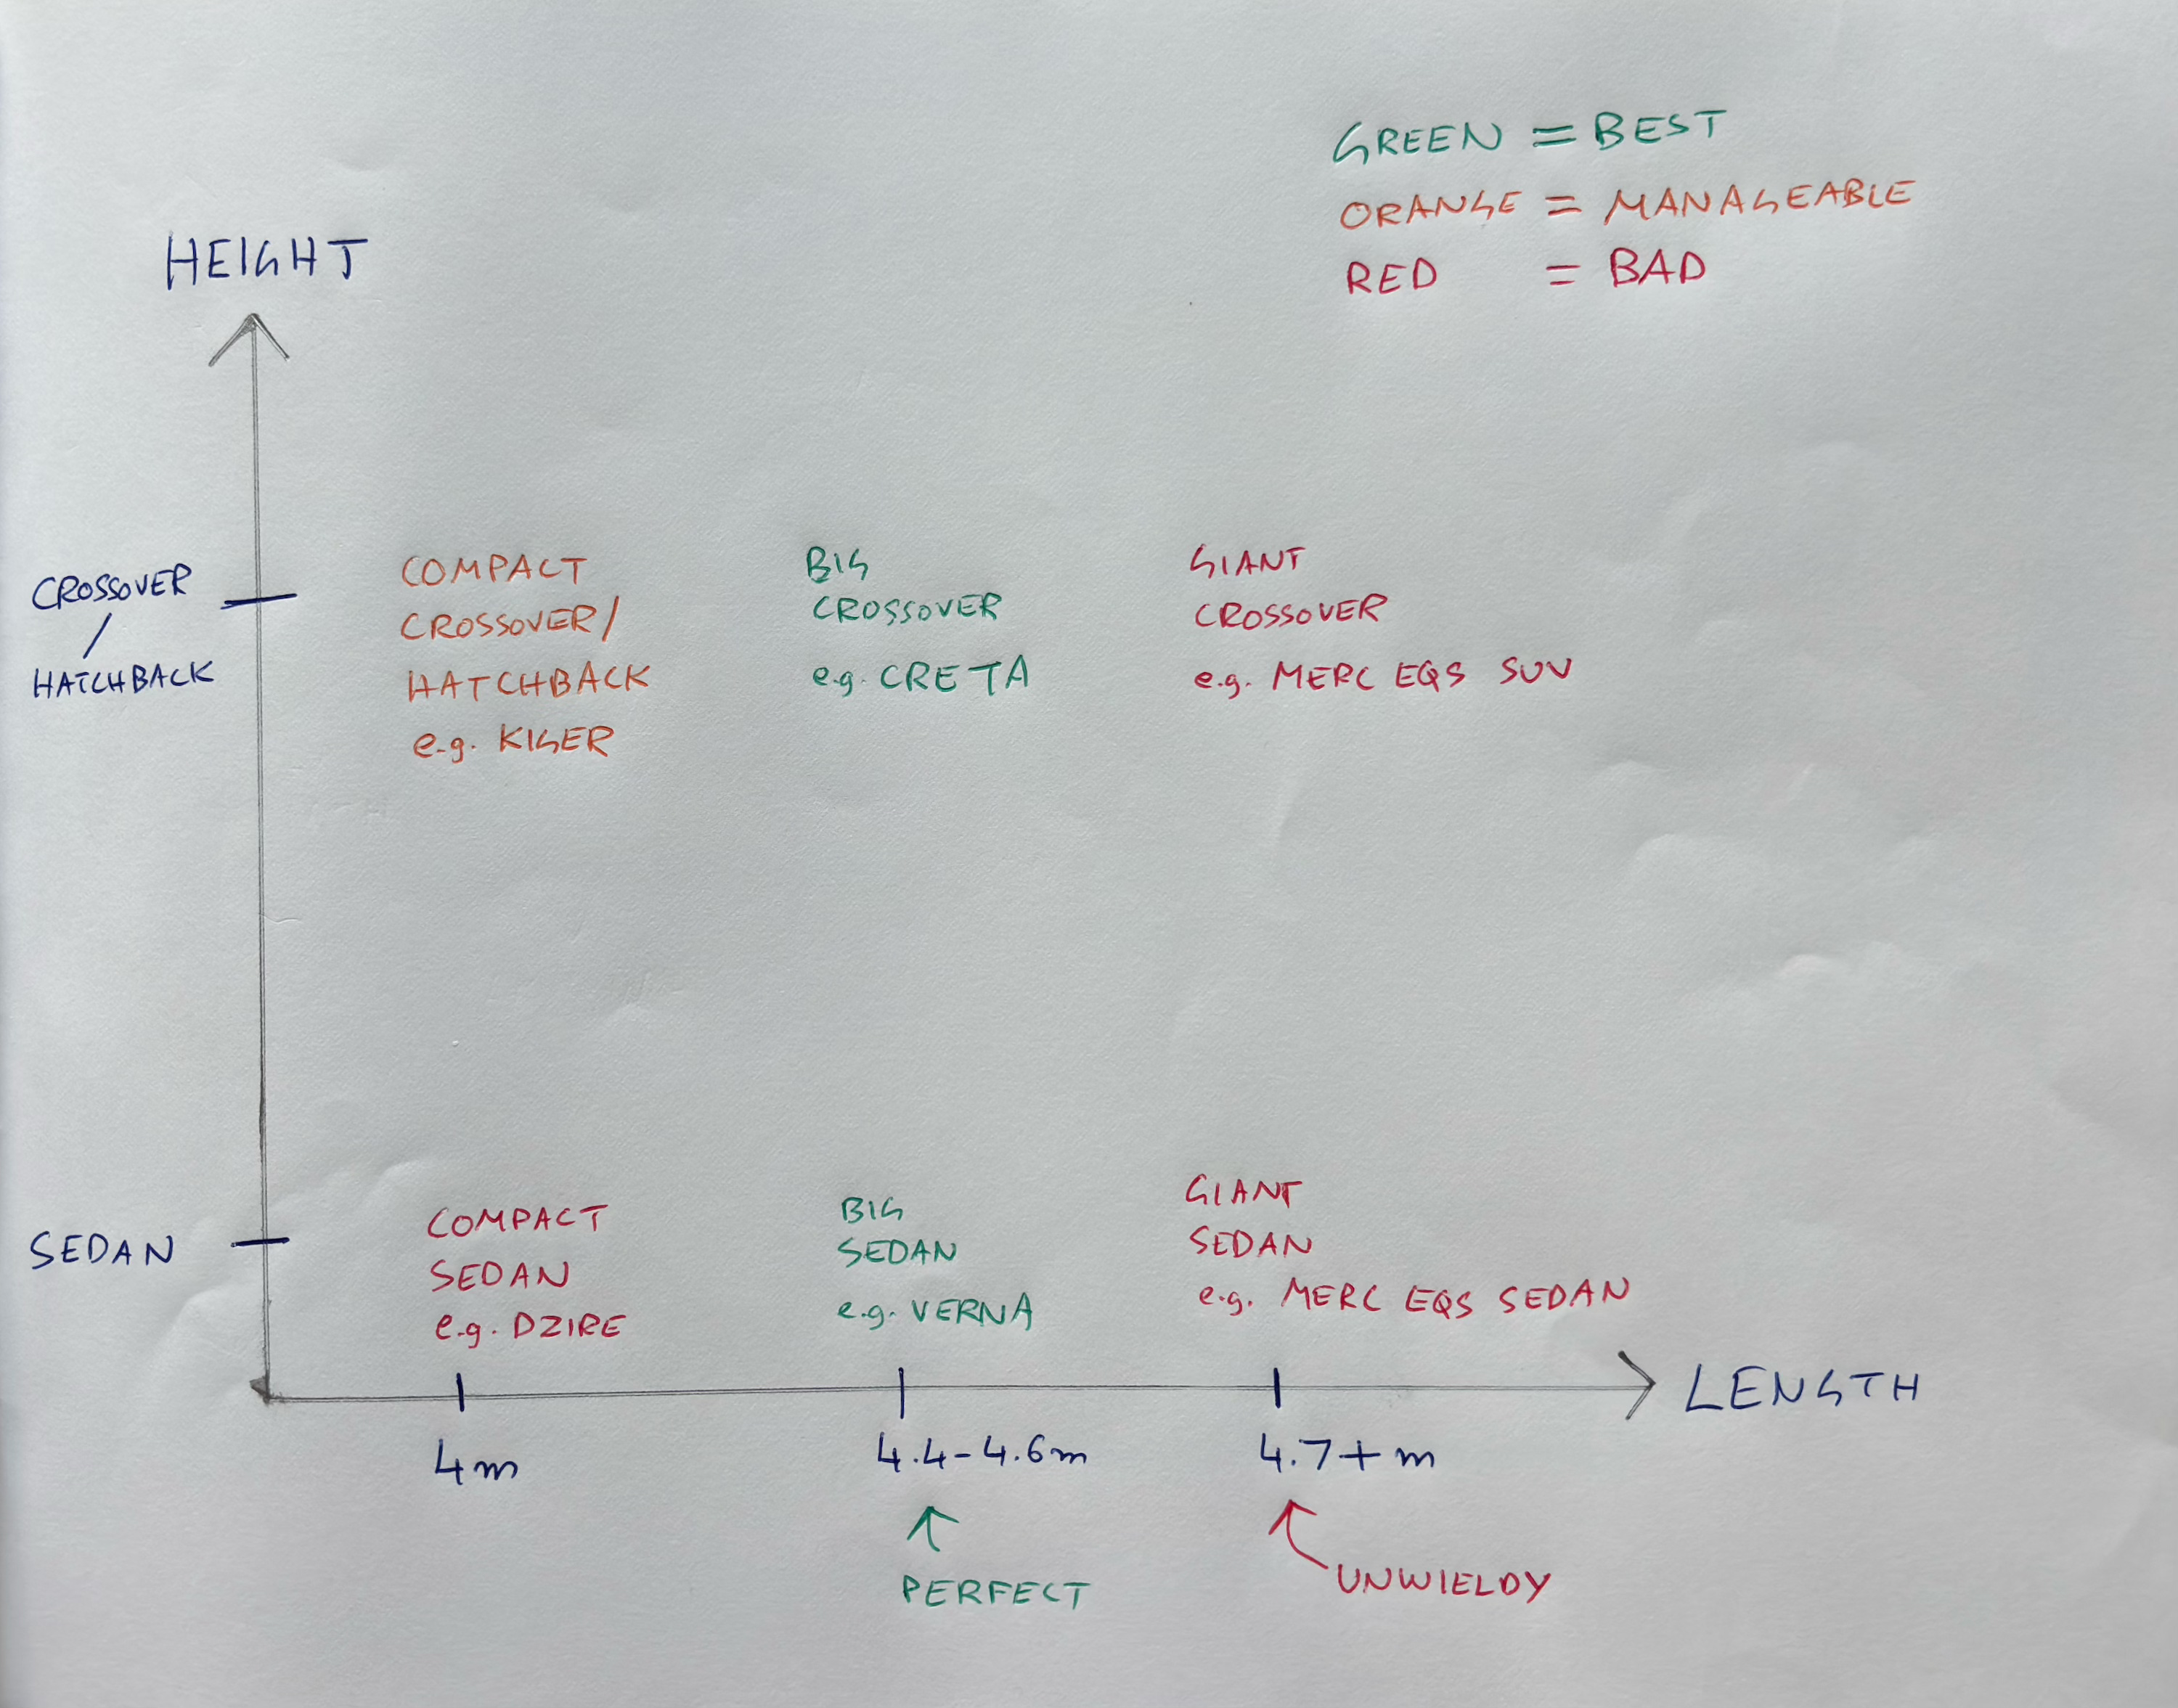 GREEN = BEST
ORANGE = MANAGEABLE
RED = BAD
HEIGHT
CROSSOVER
/
HATCHBACK
COMPACT
CROSSOVER/
HATCHBACK
e.g. KIGER
BIG
CROSSOVER
e.g. CRETA
GIANT
CROSSOVER
e.g. MERC EQS SUV
SEDAN
COMPACT
SEDAN
e.g. DZIRE
BIG
SEDAN
e.g. VERNA
GIANT
SEDAN
e.g. MERC EQS SEDAN
LENGTH
4m
4.4-4.6m
4.7+m
PERFECT
UNWIELDY